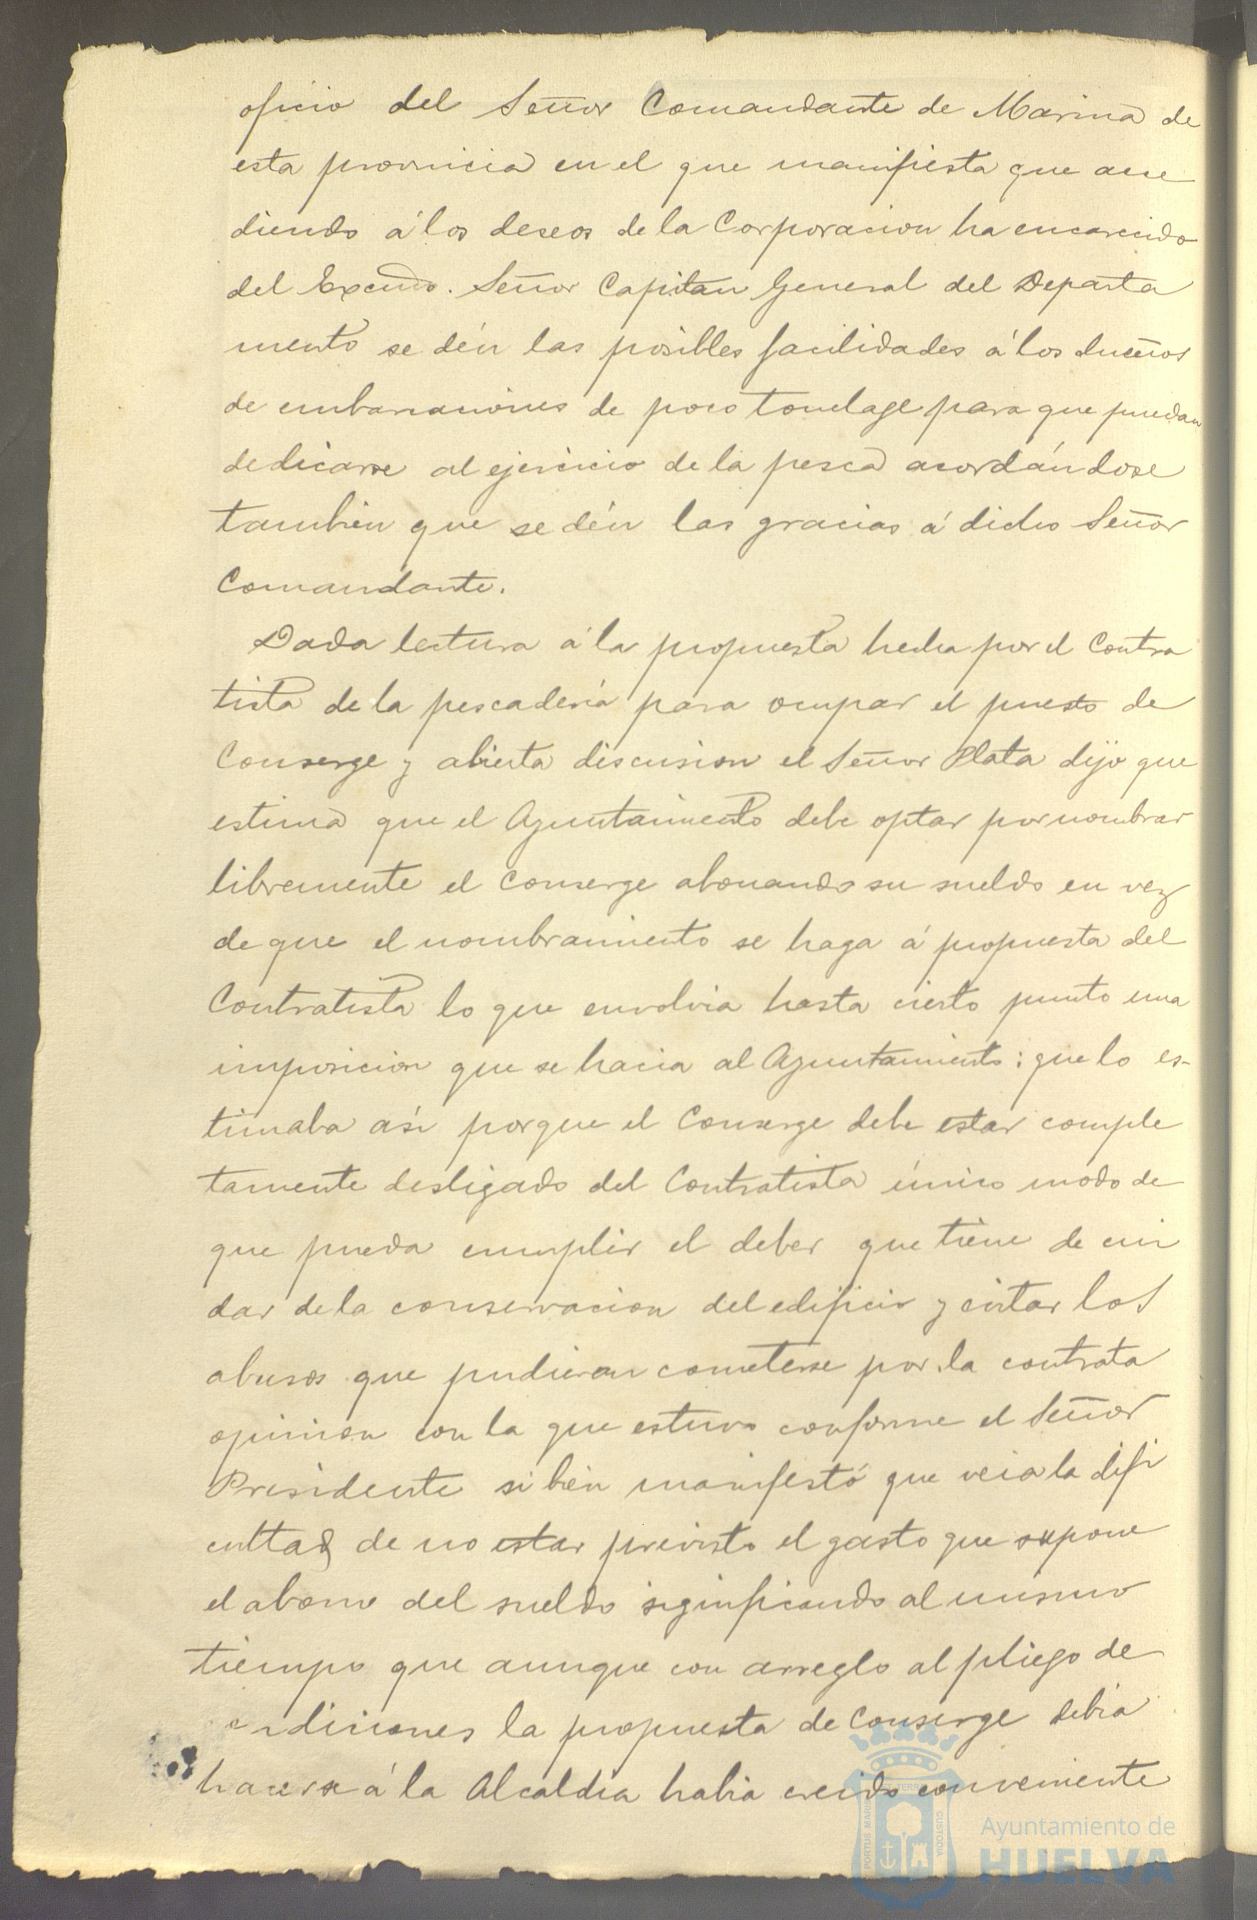 oficio del Señor Comandante de Marina de
esta provincia en el que manifiesta que acce
diendo á los deseos de la Corporacion ha encarecido
del Excmo. Señor Capitan General del Departa
mento se dén las posibles facilidades á los dueños
de embarcaciones de poco tonelage para que puedan
dedicarse al ejercicio de la pesca acordándose
tambien que se dén las gracias á dicho Señor
Comandante.
Dada lectura á la propuesta hecha por el Contra
tista de la pescadería para ocupar el puesto de
Conserge y abierta discusion el Señor Plata dijo que
estima que el Ayuntamiento debe optar por nombrar
libremente el Conserge abonando su sueldo en vez
de que el nombramiento se haga á propuesta del
Contratista lo que envolvia hasta cierto punto una
imposicion que se hacia al Ayuntamiento: que lo es-
timaba así porque el Conserge debe estar comple
tamente desligado del Contratista único modo de
que pueda cumplir el deber que tiene de cui
dar de la conservacion del edificio y evitar los
abusos que pudieran cometerse por la contrata
opinion con la que estuvo conforme el Señor
Presidente si bien manifestó que veia la difi
cultad de no estar previsto el gasto que supone
el abono del sueldo significando al mismo
tiempo que aunque con arreglo al pliego de
condiciones la propuesta de Conserge debia
hacerse á la Alcaldia habia creido conveniente
PORTUS MARIS
ET TERRAE
CUSTODIA
Ayuntamiento de
HUELVA